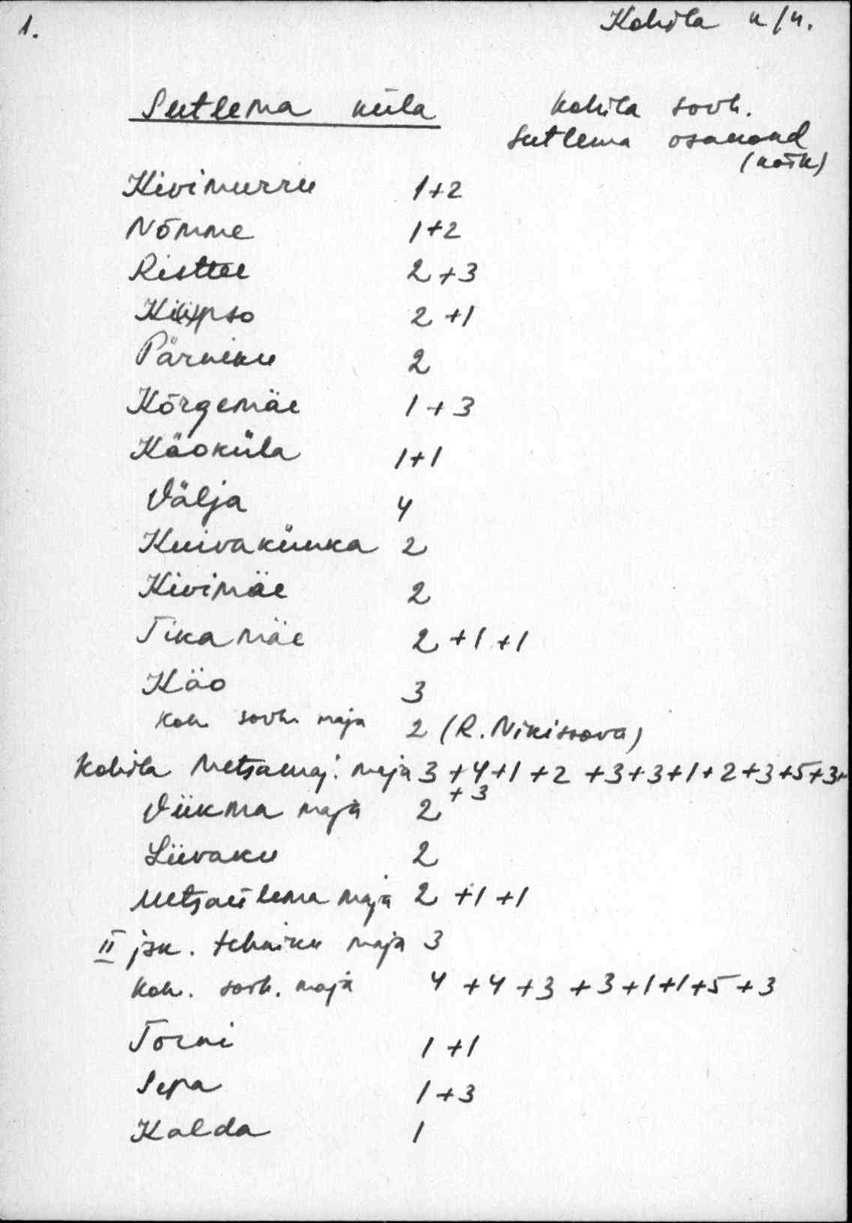 1.
Kohila k/n.
Sutlema küla
Kohila sovh.
Sutlema osakond
(kõik)
Kivimurru 1+2
Nõmme 1+2
Risttee 2+3
Kiipso 2+1
Pärniku 2
Kõrgemäe 1+3
Käoküla 1+1
Välja 4
Kuivakünka 2
Kivimäe 2
Tikamäe 2+1+1
Käo 3
Koh. sovh. maja 2 (R. Nikissova)
Kohila Metsamaj. maja 3+4+1+2+3+3+1+2+3+5+3+
+3
Viikma maja 2
Liivaku 2
Metsaülema maja 2+1+1
II jsk. tehniku maja 3
Koh. sovh. maja 4+4+3+3+1+1+5+3
Torni 1+1
Sepa 1+3
Kalda 1